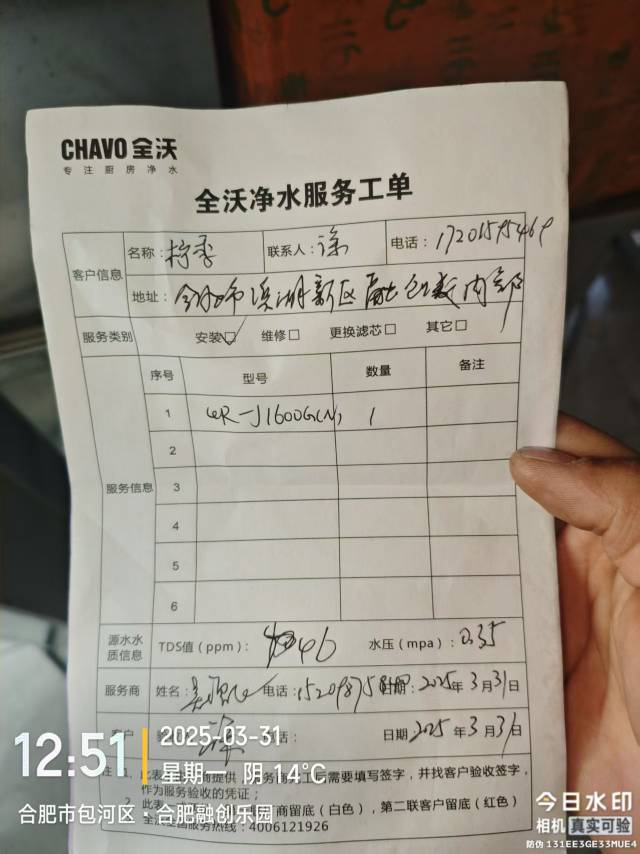 CHAVO 全沃
专注厨房净水
全沃净水服务工单
客户信息
名称: 柠季 联系人: 徐 电话: 17201595469
地址: 合肥市滨湖新区 内部
服务类别 安装☑ 维修□ 更换滤芯□ 其它□
服务信息
序号 型号 数量 备注
1 J1600G(N) 1
2
3
4
5
6
源水水质信息 TDS值（ppm）: 46 水压（mpa）: 0.35
服务商 姓名: 电话: 日期: 2025年3月31日
客户 日期: 2025年3月31日
后需要填写签字，并找客户验收签字，
作为服务验收的凭证；
商留底（白色），第二联客户留底（红色）
全国服务热线: 4006121926
12:51
2025-03-31
星期一 阴 14℃
合肥市包河区·合肥融创乐园
今日水印
相机 真实可验
防伪 131EE3GE33MUE4